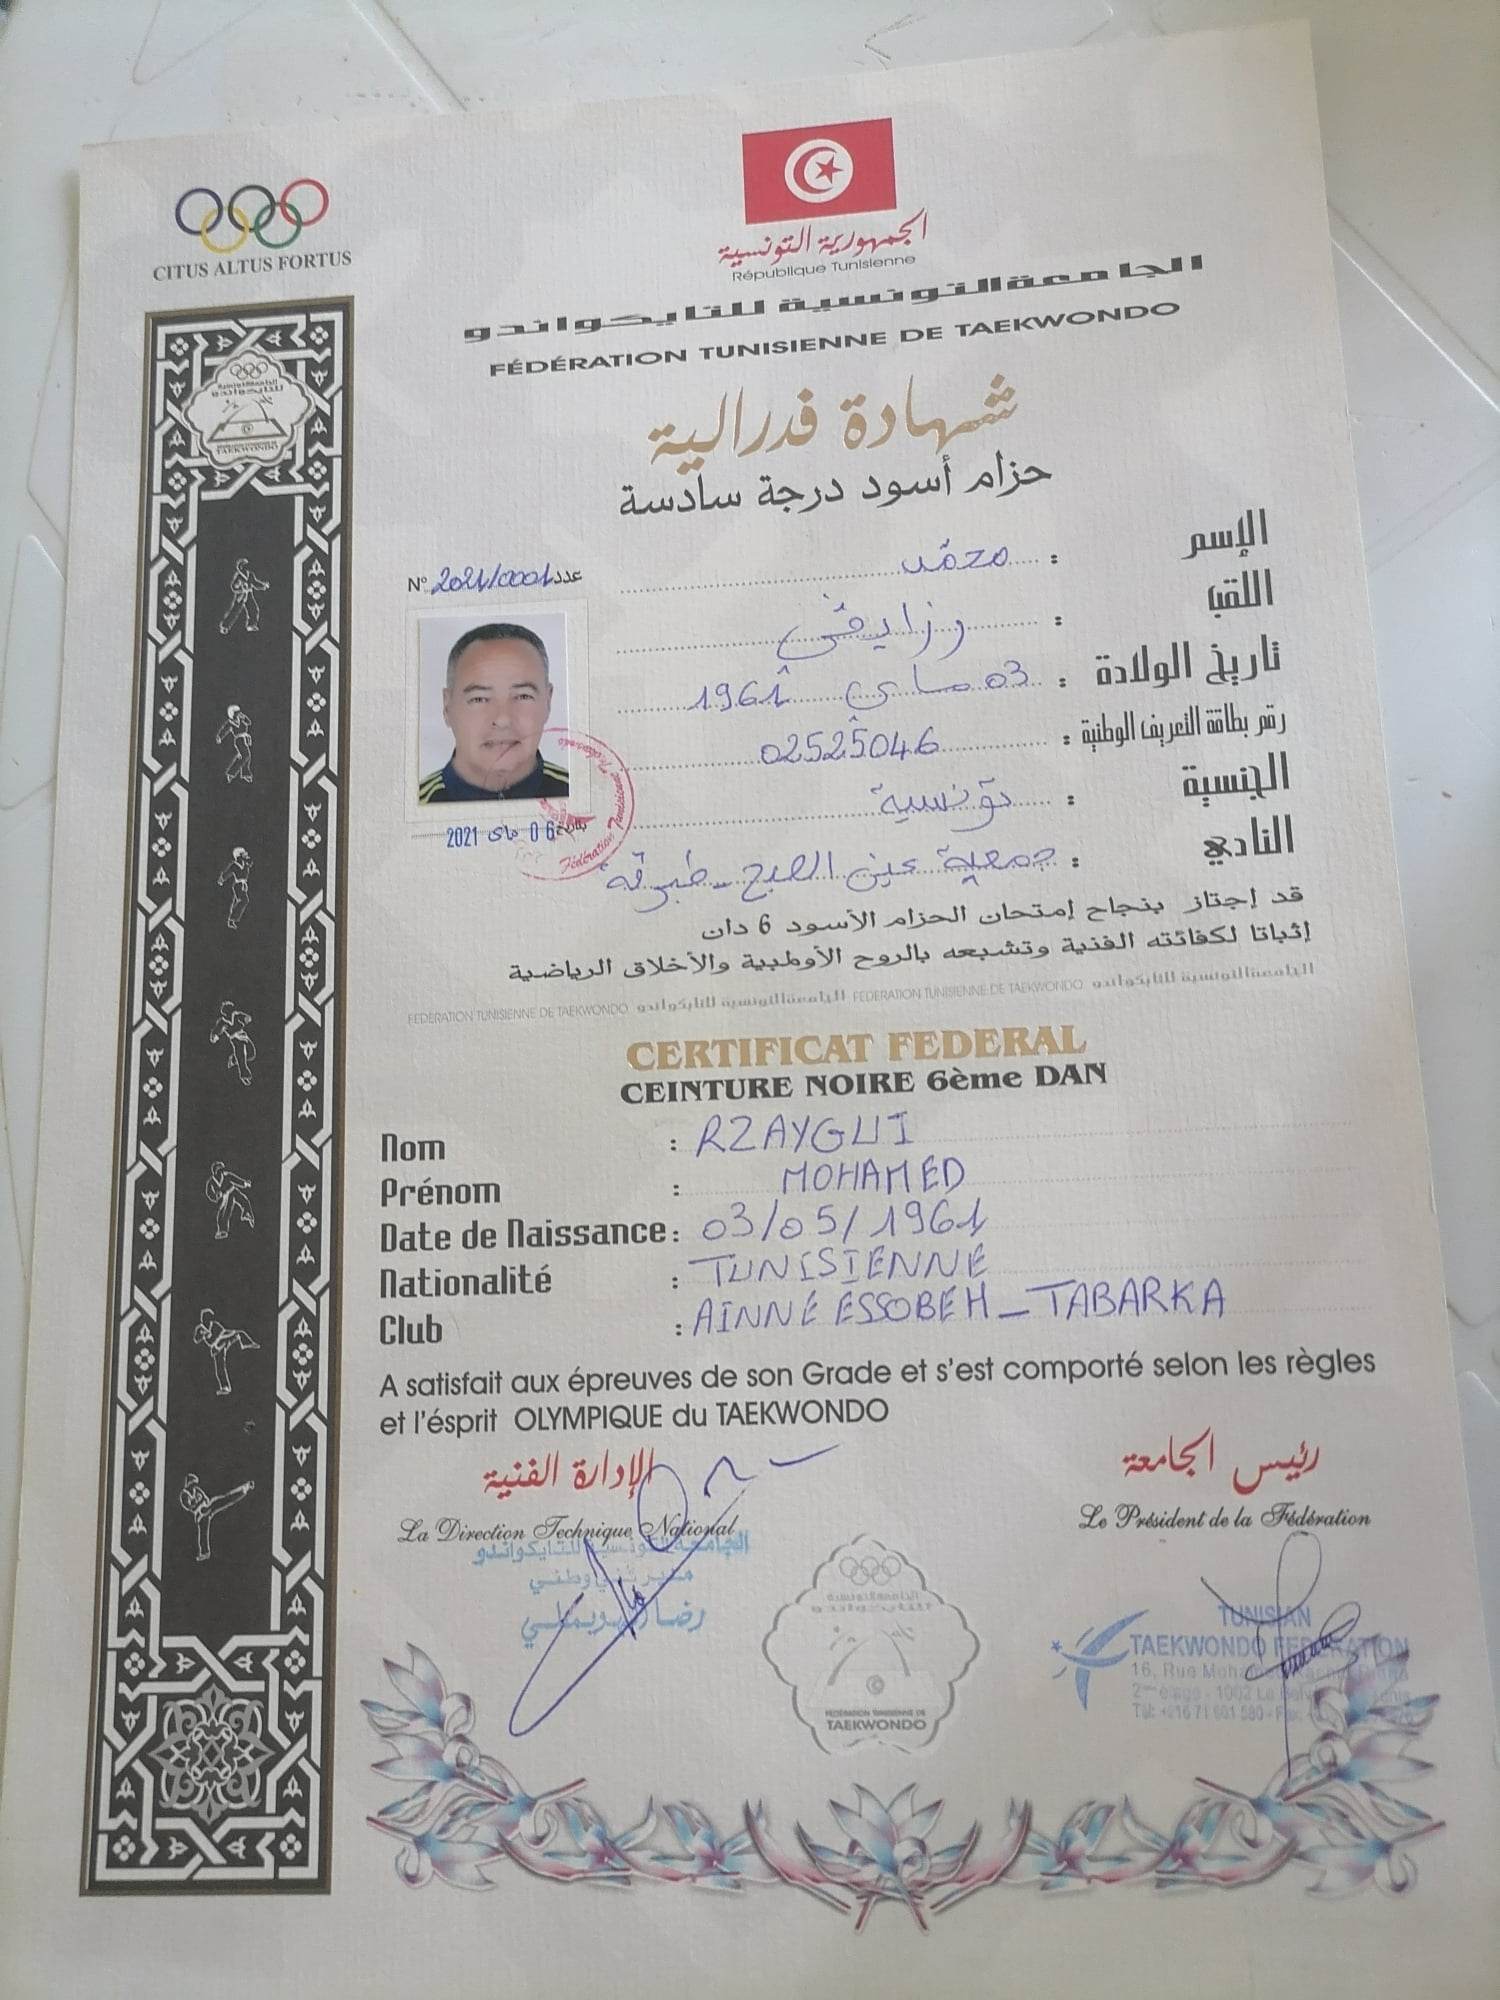 CITUS ALTUS FORTUS
الجمهورية التونسية
République Tunisienne
الجامعة التونسية للتايكواندو
FÉDÉRATION TUNISIENNE DE TAEKWONDO
شهادة فدرالية
حزام أسود درجة سادسة
N° 2021/0001 عدد
الإسم : محمد
اللقب : رزايقي
تاريخ الولادة : 03 ماي 1961
رقم بطاقة التعريف الوطنية : 02525046
الجنسية : تونسية
النادي : جمعية عين الصبح - طبرقة
بتاريخ 06 ماي 2021
Fédération Tunisienne
قد إجتاز بنجاح إمتحان الحزام الأسود 6 دان
إثباتا لكفائته الفنية وتشبعه بالروح الأولمبية والأخلاق الرياضية
FEDERATION TUNISIENNE DE TAEKWONDO الجامعة التونسية للتايكواندو FEDERATION TUNISIENNE DE TAEKWONDO الجامعة التونسية للتايكواندو
CERTIFICAT FEDERAL
CEINTURE NOIRE 6ème DAN
Nom : RZAYGUI
Prénom : MOHAMED
Date de Naissance : 03/05/1961
Nationalité : TUNISIENNE
Club : AINNE ESSOBEH - TABARKA
A satisfait aux épreuves de son Grade et s'est comporté selon les règles
et l'ésprit OLYMPIQUE du TAEKWONDO
الإدارة الفنية
La Direction Technique National
الجامعة التونسية للتايكواندو
مدير فني وطني
رضا
رئيس الجامعة
Le Président de la Fédération
TUNISIAN
TAEKWONDO FEDERATION
16, Rue
2ème étage - 1002
الجامعة التونسية
للتايكواندو
FEDERATION TUNISIENNE DE
TAEKWONDO